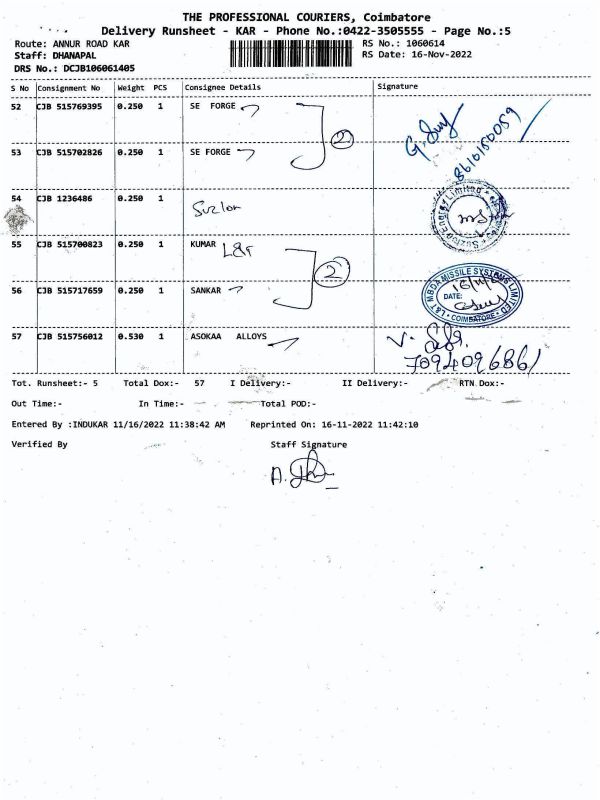 THE PROFESSIONAL COURIERS, Coimbatore
Delivery Runsheet - KAR - Phone No.:0422-3505555 - Page No.:5
Route: ANNUR ROAD KAR RS No.: 1060614
Staff: DHANAPAL RS Date: 16-Nov-2022
DRS No.: DCJB106061405
S No Consignment No Weight PCS Consignee Details Signature
52 CJB 515769395 0.250 1 SE FORGE
2
8610150059
53 CJB 515702826 0.250 1 SE FORGE
54 CJB 1236486 0.250 1 Suzlon
Suzlon Energy Limited
55 CJB 515700823 0.250 1 KUMAR L&T
2
L&T MBDA MISSILE SYSTEMS LIMITED
DATE:
COIMBATORE
56 CJB 515717659 0.250 1 SANKAR
57 CJB 515756012 0.530 1 ASOKAA ALLOYS
7094096861
Tot. Runsheet:- 5 Total Dox:- 57 I Delivery:- II Delivery:- RTN Dox:-
Out Time:- In Time:- Total POD:-
Entered By :INDUKAR 11/16/2022 11:38:42 AM Reprinted On: 16-11-2022 11:42:10
Verified By Staff Signature